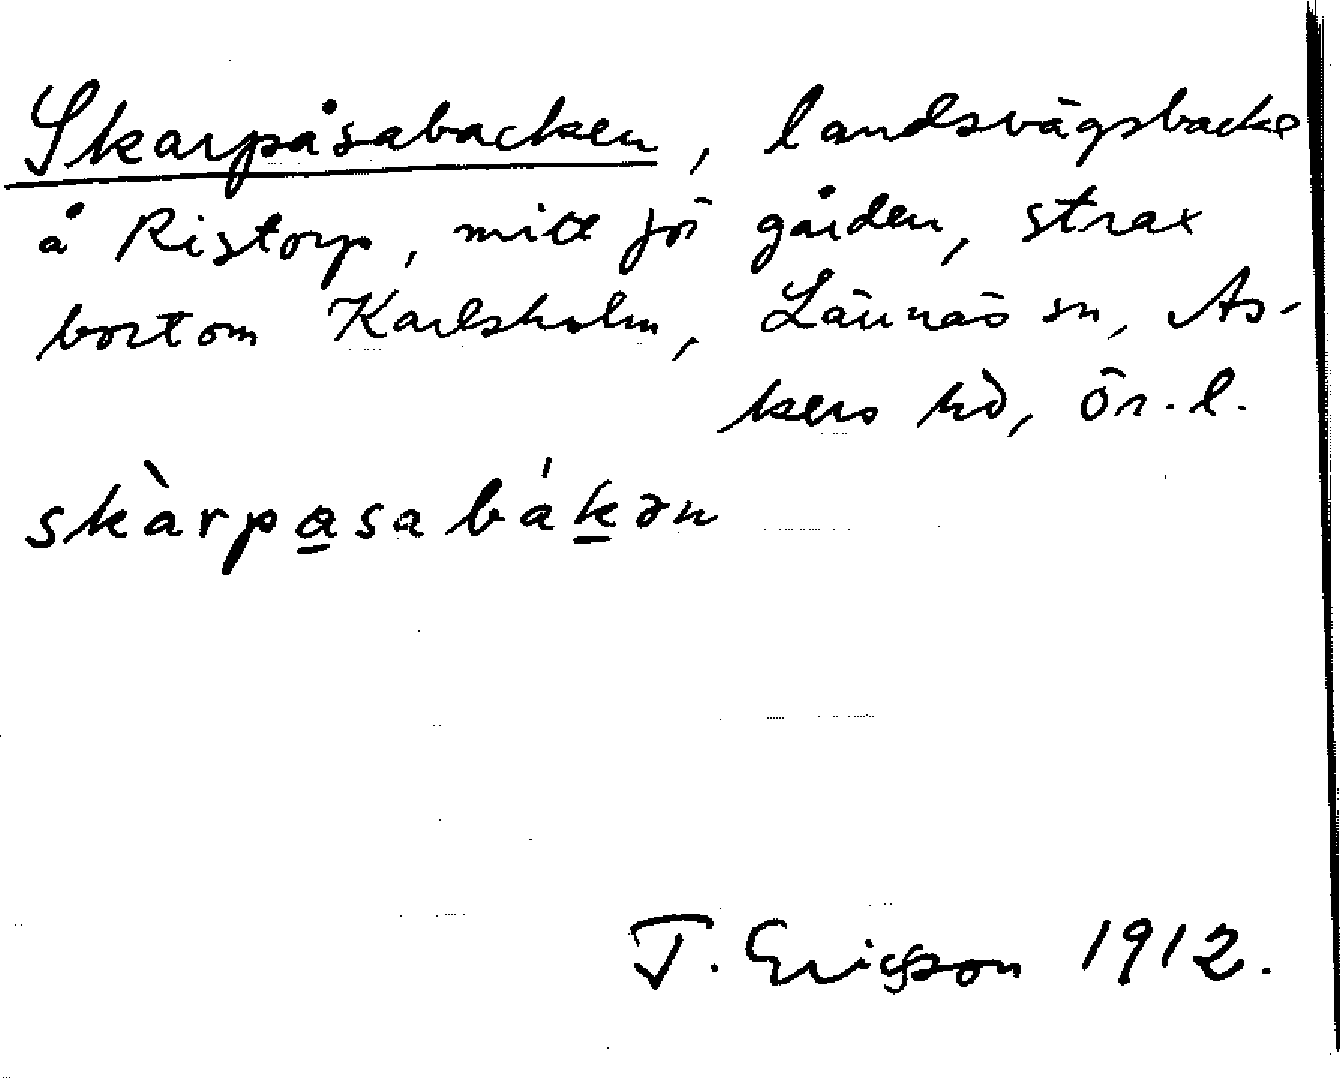 Skarpåsabacken, landsvägsbacke
å Ristorp, mitt för gården, strax
bortom Karlsholm, Lännäs sn, As-
kers hd, Ör. l.
skàrpa̲sabák̲ən
T. Ericsson 1912.